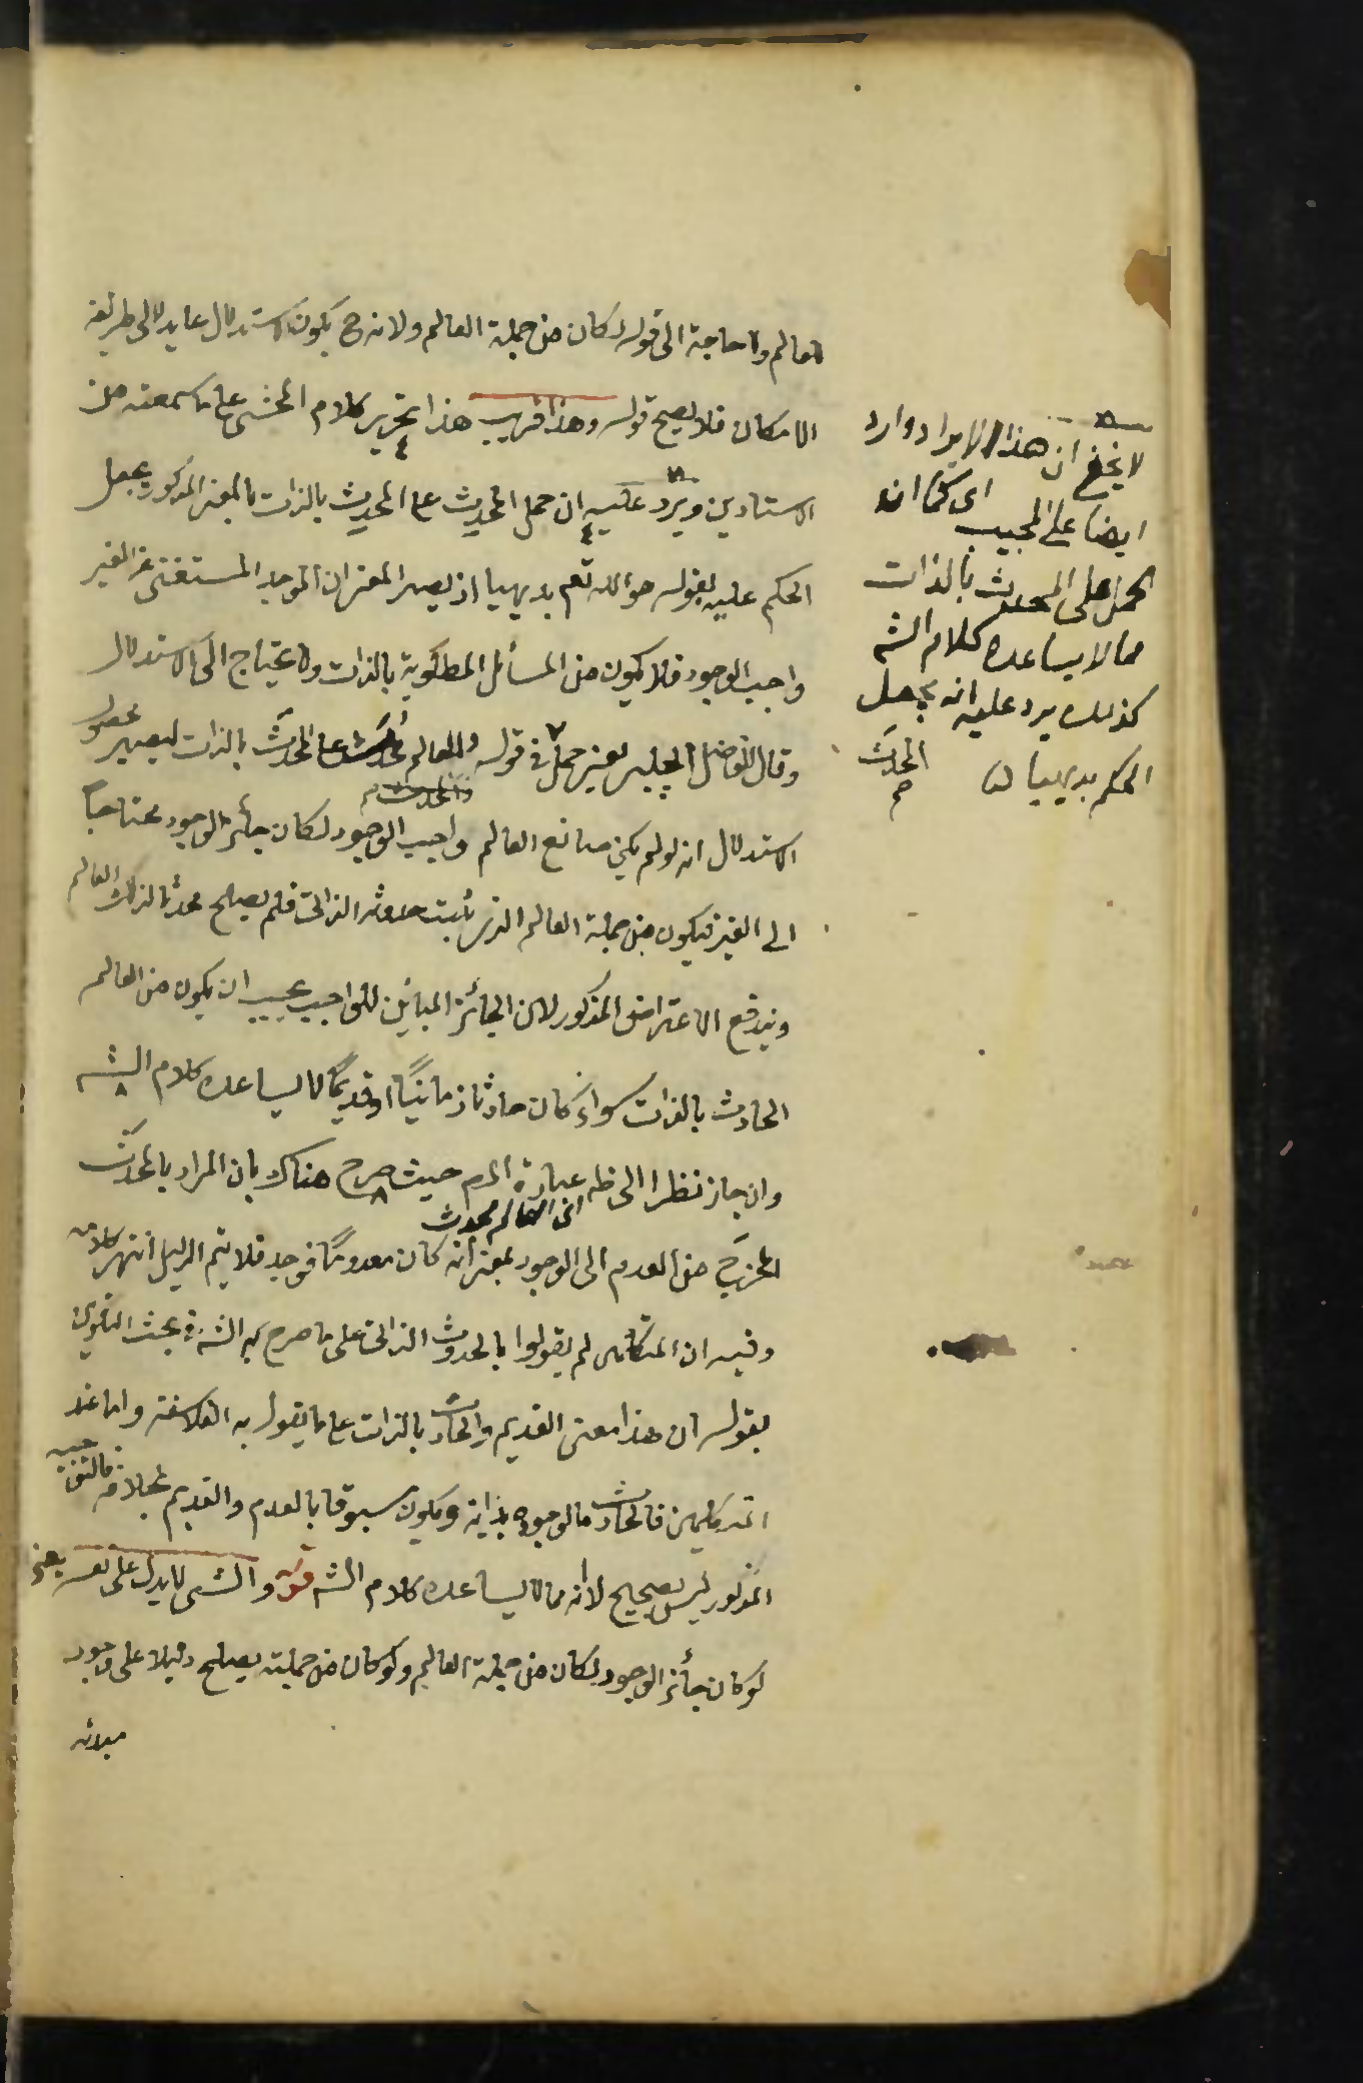 للعالم ولا حاجة الى قوله لكان من جملة العالم ولانه ح يكون الاستدلال عايدا الى طريقة
الامكان فلا يصح قوله وهذا قريب هذا تحرير كلام المحشى على ما سمعته من
الاستادين ويرد عليه ان حمل المحدث على المحدث بالذات بالمعنى المذكور يجعل
الحكم عليه بقوله هو الله تعم بديهيا اذ يصير المعنى ان الموجد المستغنى عن الغير
واجب الوجود فلا يكون من المسائل المطلوبة بالذات ولا يحتاج الى الاستدلال
وقال الفاضل الجلبى يعنى حمل فى قوله والعالم محدث على المحدث بالذات ليصير محصول
الاستدلال انه لو لم يكن صانع العالم واجب الوجود لكان جائز الوجود محتاجا
الى الغير فيكون من جملة العالم الذى ثبت حدوثه الذاتى فلم يصلح محدثا لذلك العالم
ويندفع الاعتراض المذكور لان الجائز المباين للواجب يجب ان يكون من العالم
الحادث بالذات سواء كان حادثا زمانيا او قديما لا يساعده كلام الشه
وان جاز نظرا الى ظه عبارة المص حيث صرح هناك بان المراد بالمحدث
اى العالم محدث
المخرج من العدم الى الوجود بمعنى انه كان معدوما فوجد فلا يتم الدليل انتهى كلامه
وفيه ان المتكلمين لم يقولوا بالحدوث الذاتى على ما صرح به الشه فى بحث التكوين
بقوله ان هذا معنى القديم والحادث بالذات على ما يقول به الفلاسفة واما عند
المتكلمين فالحادث ما لوجوده بداية ويكون مسبوقا بالعدم والقديم بخلافه فالتوجيه
المذكور ليس بصحيح لانه مما لا يساعده كلام الشه قوله والشئ لا يدل على نفسه يعنى
لو كان جائز الوجود لكان من جملة العالم ولو كان من جملته يصلح دليلا على وجود
مبدائه
لا يخفى ان هذا الايراد وارد
ايضا على المجيب اى كما ان
الحمل على المحدث بالذات
مما لا يساعده كلام الشه
كذلك يرد عليه انه يجعل
الحكم بديهيا
المحدث